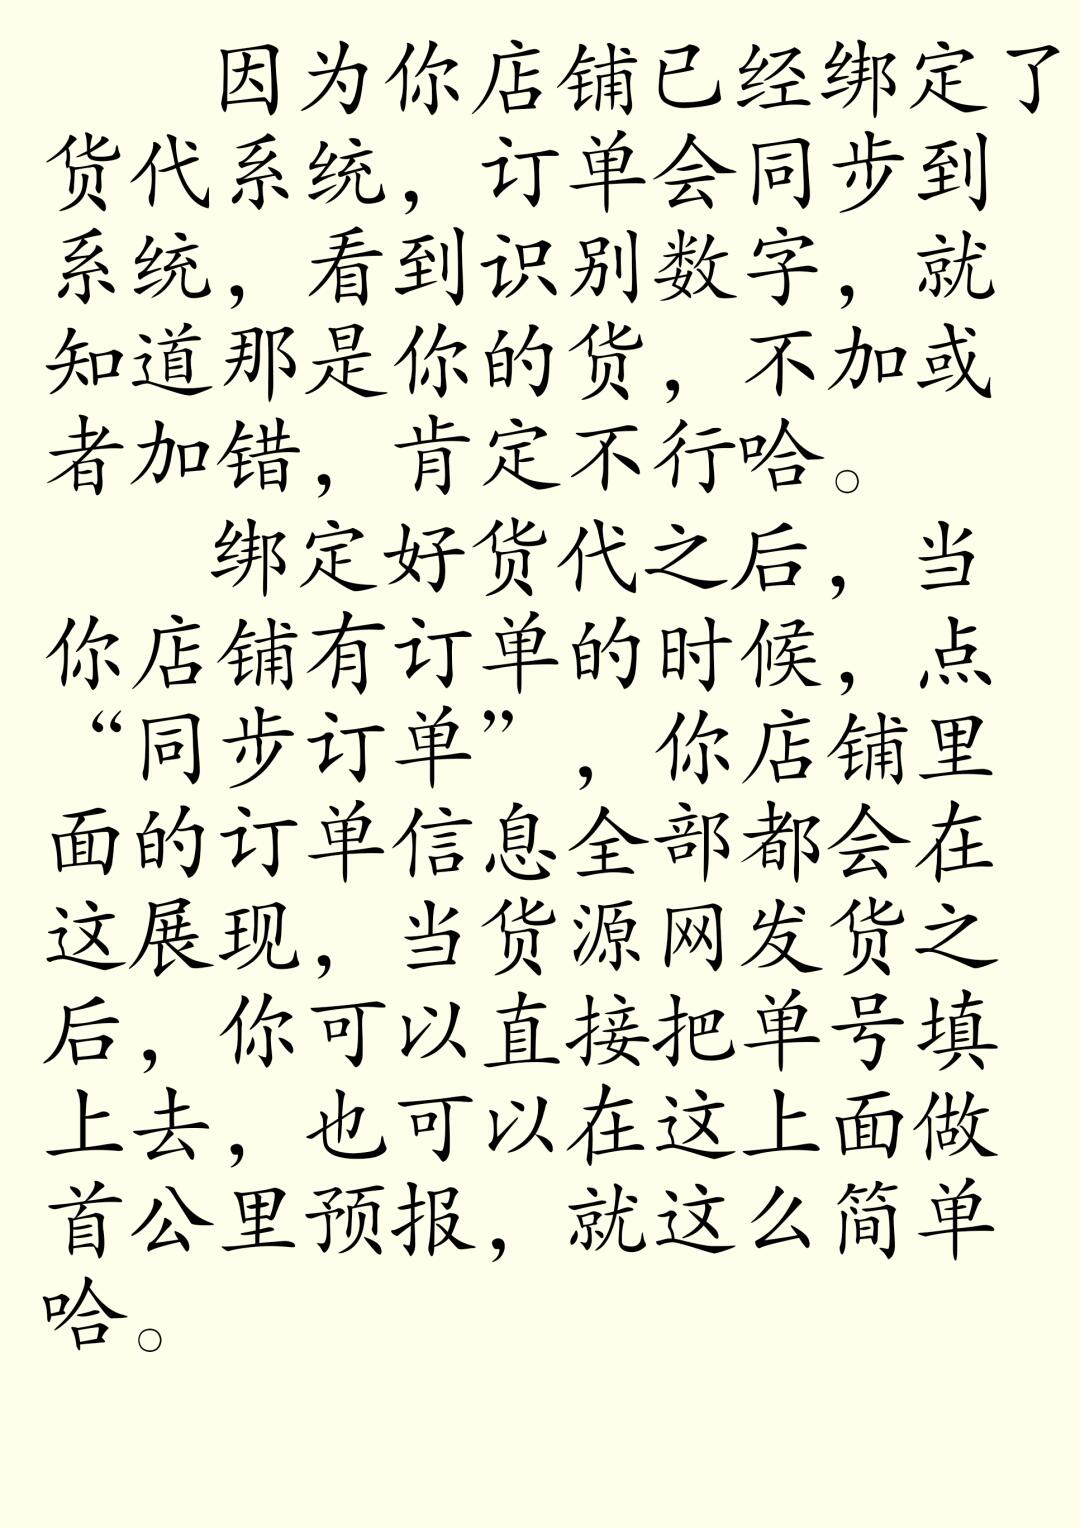 因为你店铺已经绑定了
货代系统，订单会同步到
系统，看到识别数字，就
知道那是你的货，不加或
者加错，肯定不行哈。
绑定好货代之后，当
你店铺有订单的时候，点
“同步订单”，你店铺里
面的订单信息全部都会在
这展现，当货源网发货之
后，你可以直接把单号填
上去，也可以在这上面做
首公里预报，就这么简单
哈。